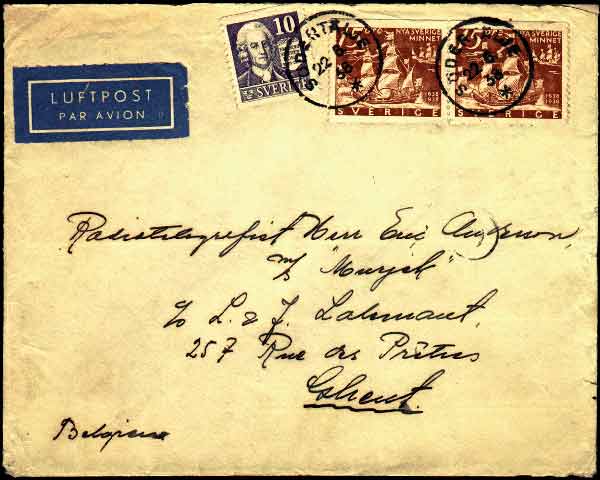 10
SVERIGE
15 NYA SVERIGE
MINNET
1638
1938
SVERIGE
15 NYA SVERIGE
MINNET
1638
1938
SVERIGE
SÖDERTÄLJE
22 6
38
SÖDERTÄLJE
22 6
38
LUFTPOST
PAR AVION
Radiotelegrafist Herr Eric Anderson,
m/s "
c/o L. & J. Lalemant,
257 Rue des Prêtres
Ghent.
Belgien